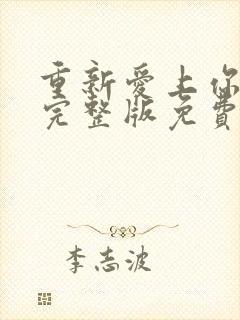 重新爱上你
完整版免费
李志波